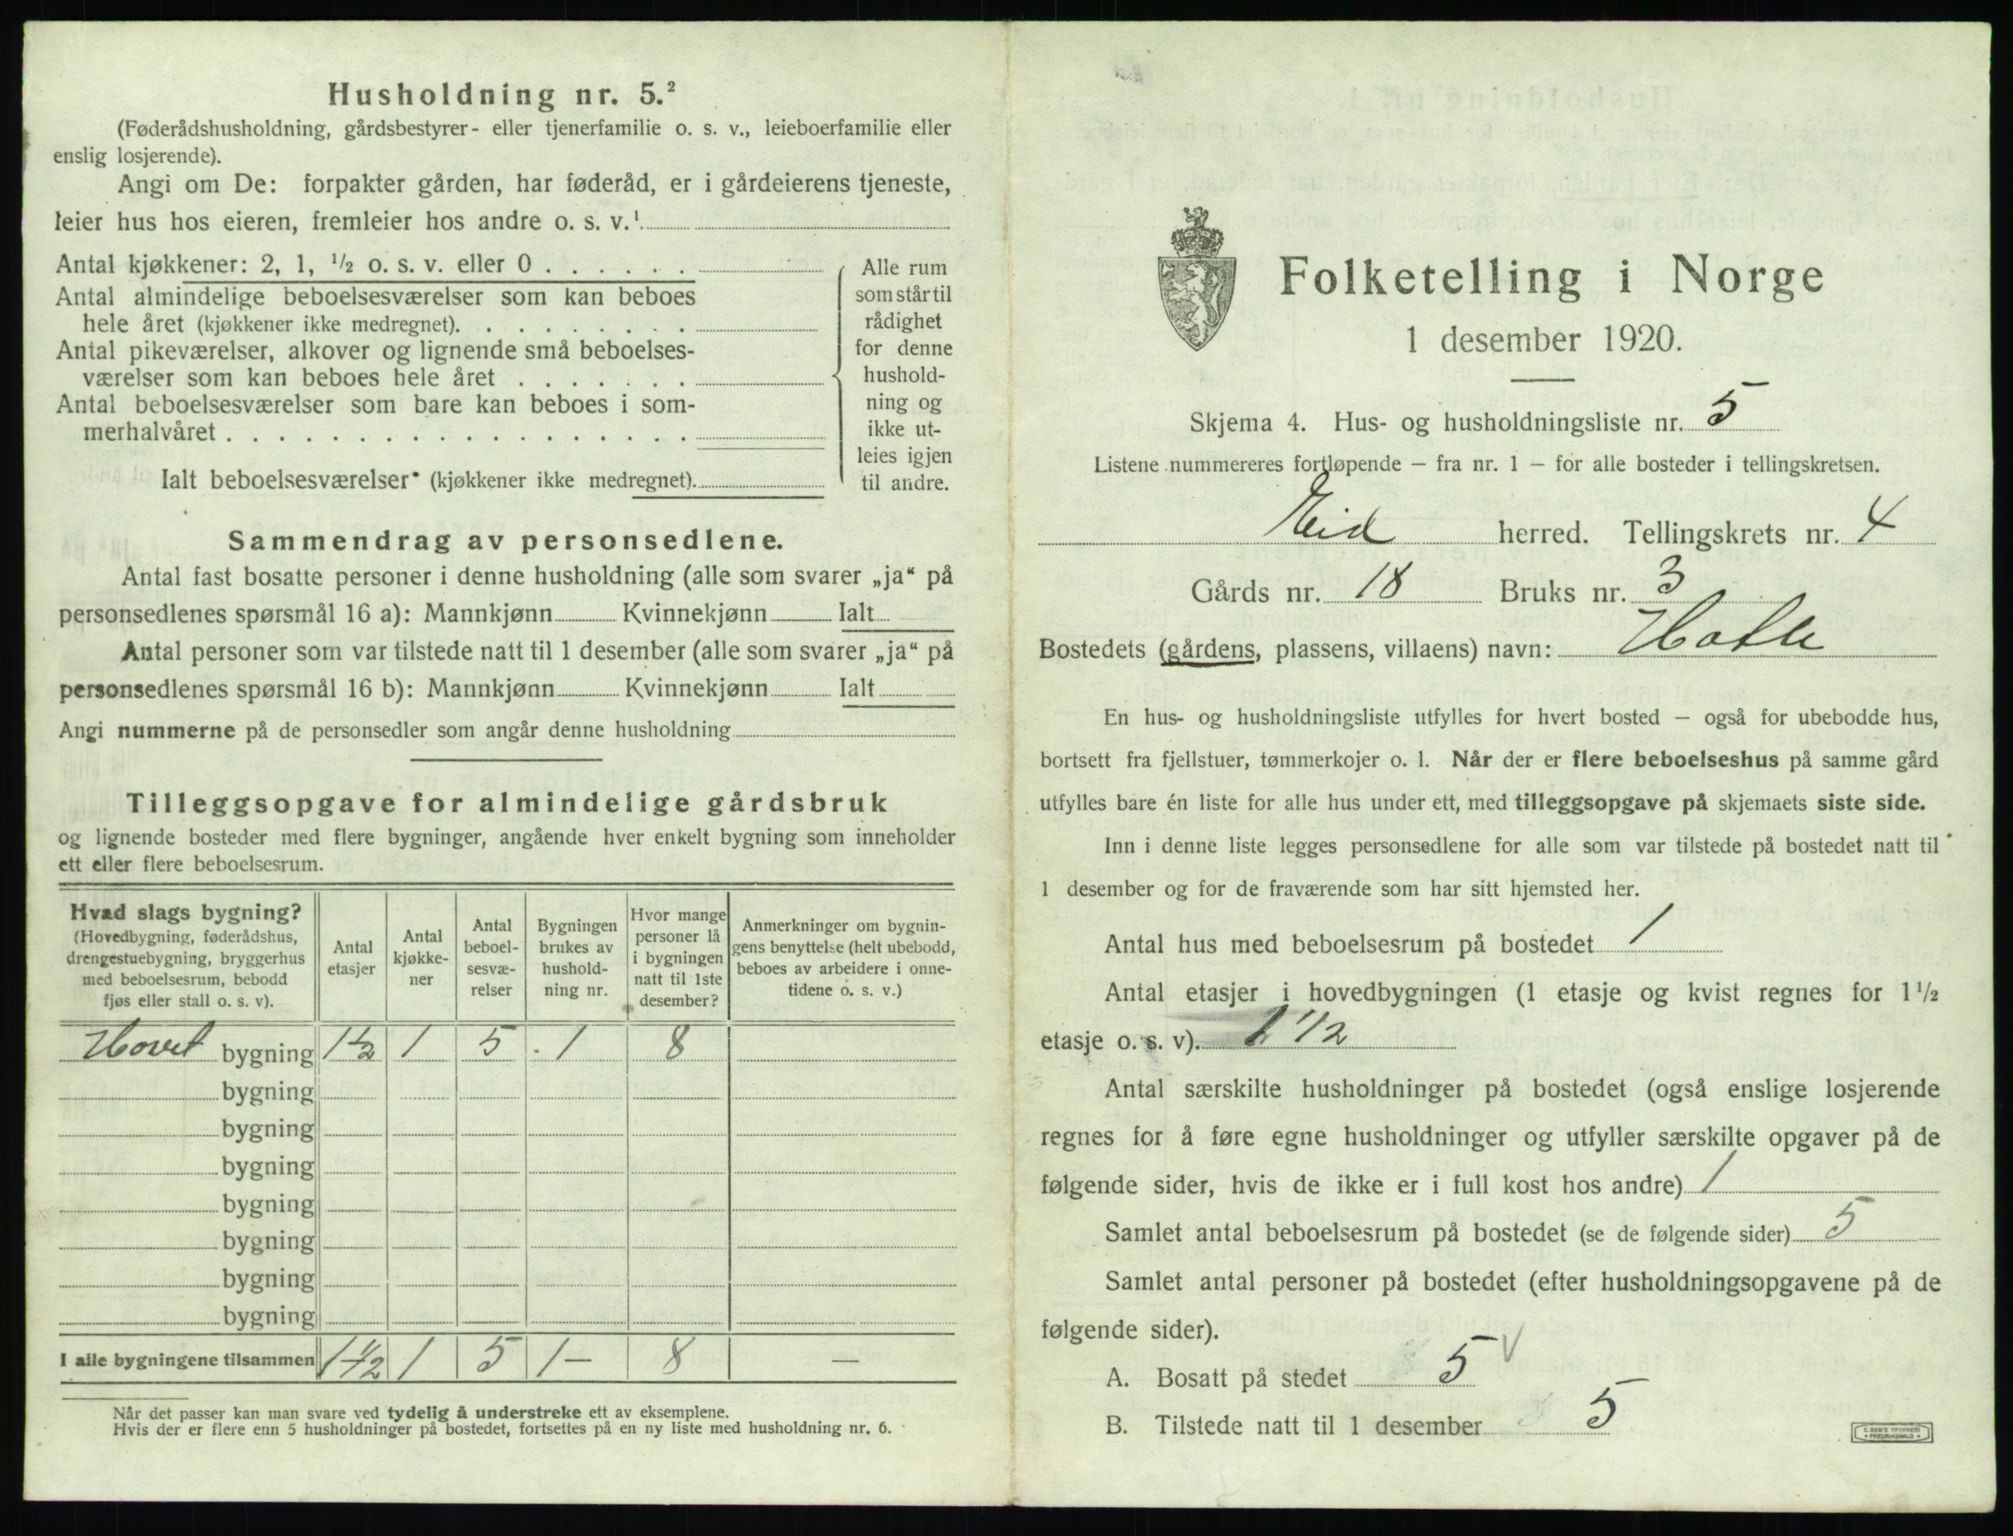 Husholdning nr. 5.²
(Føderådshusholdning, gårdsbestyrer- eller tjenerfamilie o. s. v., leieboerfamilie eller
enslig losjerende).
Angi om De: forpakter gården, har føderåd, er i gårdeierens tjeneste,
leier hus hos eieren, fremleier hos andre o. s. v.¹
Antal kjøkkener: 2, 1, ½ o. s. v. eller 0 . . . . . .
Antal almindelige beboelsesværelser som kan beboes
hele året (kjøkkener ikke medregnet). . . . . . . . .
Antal pikeværelser, alkover og lignende små beboelses-
værelser som kan beboes hele året . . . . . . .
Antal beboelsesværelser som bare kan beboes i som-
merhalvåret . . . . . . . . . . . . . . . . . .
Ialt beboelsesværelser* (kjøkkener ikke medregnet).
Alle rum
som står til
rådighet
for denne
hushold-
ning og
ikke ut-
leies igjen
til andre.
Sammendrag av personsedlene.
Antal fast bosatte personer i denne husholdning (alle som svarer „ja“ på
personsedlenes spørsmål 16 a): Mannkjønn Kvinnekjønn Ialt
Antal personer som var tilstede natt til 1 desember (alle som svarer „ja“ på
personsedlenes spørsmål 16 b): Mannkjønn Kvinnekjønn Ialt
Angi nummerne på de personsedler som angår denne husholdning
Tilleggsopgave for almindelige gårdsbruk
og lignende bosteder med flere bygninger, angående hver enkelt bygning som inneholder
ett eller flere beboelsesrum.
Hvad slags bygning?
(Hovedbygning, føderådshus,
drengestuebygning, bryggerhus
med beboelsesrum, bebodd
fjøs eller stall o. s. v).
Antal
etasjer
Antal
kjøkke-
ner
Antal
beboel-
sesvæ-
relser
Bygningen
brukes av
hushold-
ning nr.
Hvor mange
personer lå
i bygningen
natt til 1ste
desember?
Anmerkninger om bygnin-
gens benyttelse (helt ubebodd,
beboes av arbeidere i onne-
tidene o. s. v.)
Hovet bygning 1½ 1 5 1 8
bygning
bygning
bygning
bygning
bygning
bygning
bygning
I alle bygningene tilsammen 1½ 1 5 1 — 8 —
Når det passer kan man svare ved tydelig å understreke ett av eksemplene.
Hvis der er flere enn 5 husholdninger på bostedet, fortsettes på en ny liste med husholdning nr. 6.
Folketelling i Norge
1 desember 1920.
Skjema 4. Hus- og husholdningsliste nr. 5
Listene nummereres fortløpende – fra nr. 1 – for alle bosteder i tellingskretsen.
Eid herred. Tellingskrets nr. 4
Gårds nr. 18 Bruks nr. 3
Bostedets (gårdens, plassens, villaens) navn: Hatle
En hus- og husholdningsliste utfylles for hvert bosted – også for ubebodde hus,
bortsett fra fjellstuer, tømmerkojer o. l. Når der er flere beboelseshus på samme gård
utfylles bare én liste for alle hus under ett, med tilleggsopgave på skjemaets siste side.
Inn i denne liste legges personsedlene for alle som var tilstede på bostedet natt til
1 desember og for de fraværende som har sitt hjemsted her.
Antal hus med beboelsesrum på bostedet 1
Antal etasjer i hovedbygningen (1 etasje og kvist regnes for 1½
etasje o. s. v). 1 1/2
Antal særskilte husholdninger på bostedet (også enslige losjerende
regnes for å føre egne husholdninger og utfyller særskilte opgaver på de
følgende sider, hvis de ikke er i full kost hos andre) 1
Samlet antal beboelsesrum på bostedet (se de følgende sider) 5
Samlet antal personer på bostedet (efter husholdningsopgavene på de
følgende sider).
A. Bosatt på stedet 5 √
B. Tilstede natt til 1 desember 5